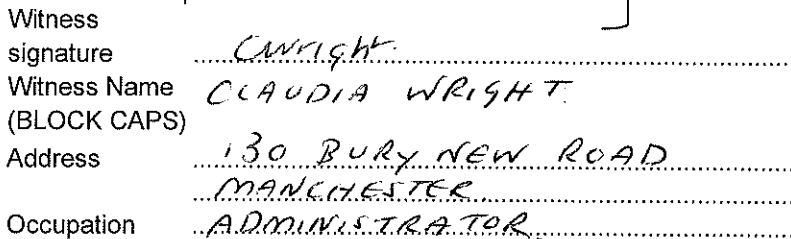 Witness
signature CWright.
Witness Name CLAUDIA WRIGHT.
(BLOCK CAPS)
Address 130 BURY NEW ROAD
MANCHESTER
Occupation ADMINISTRATOR